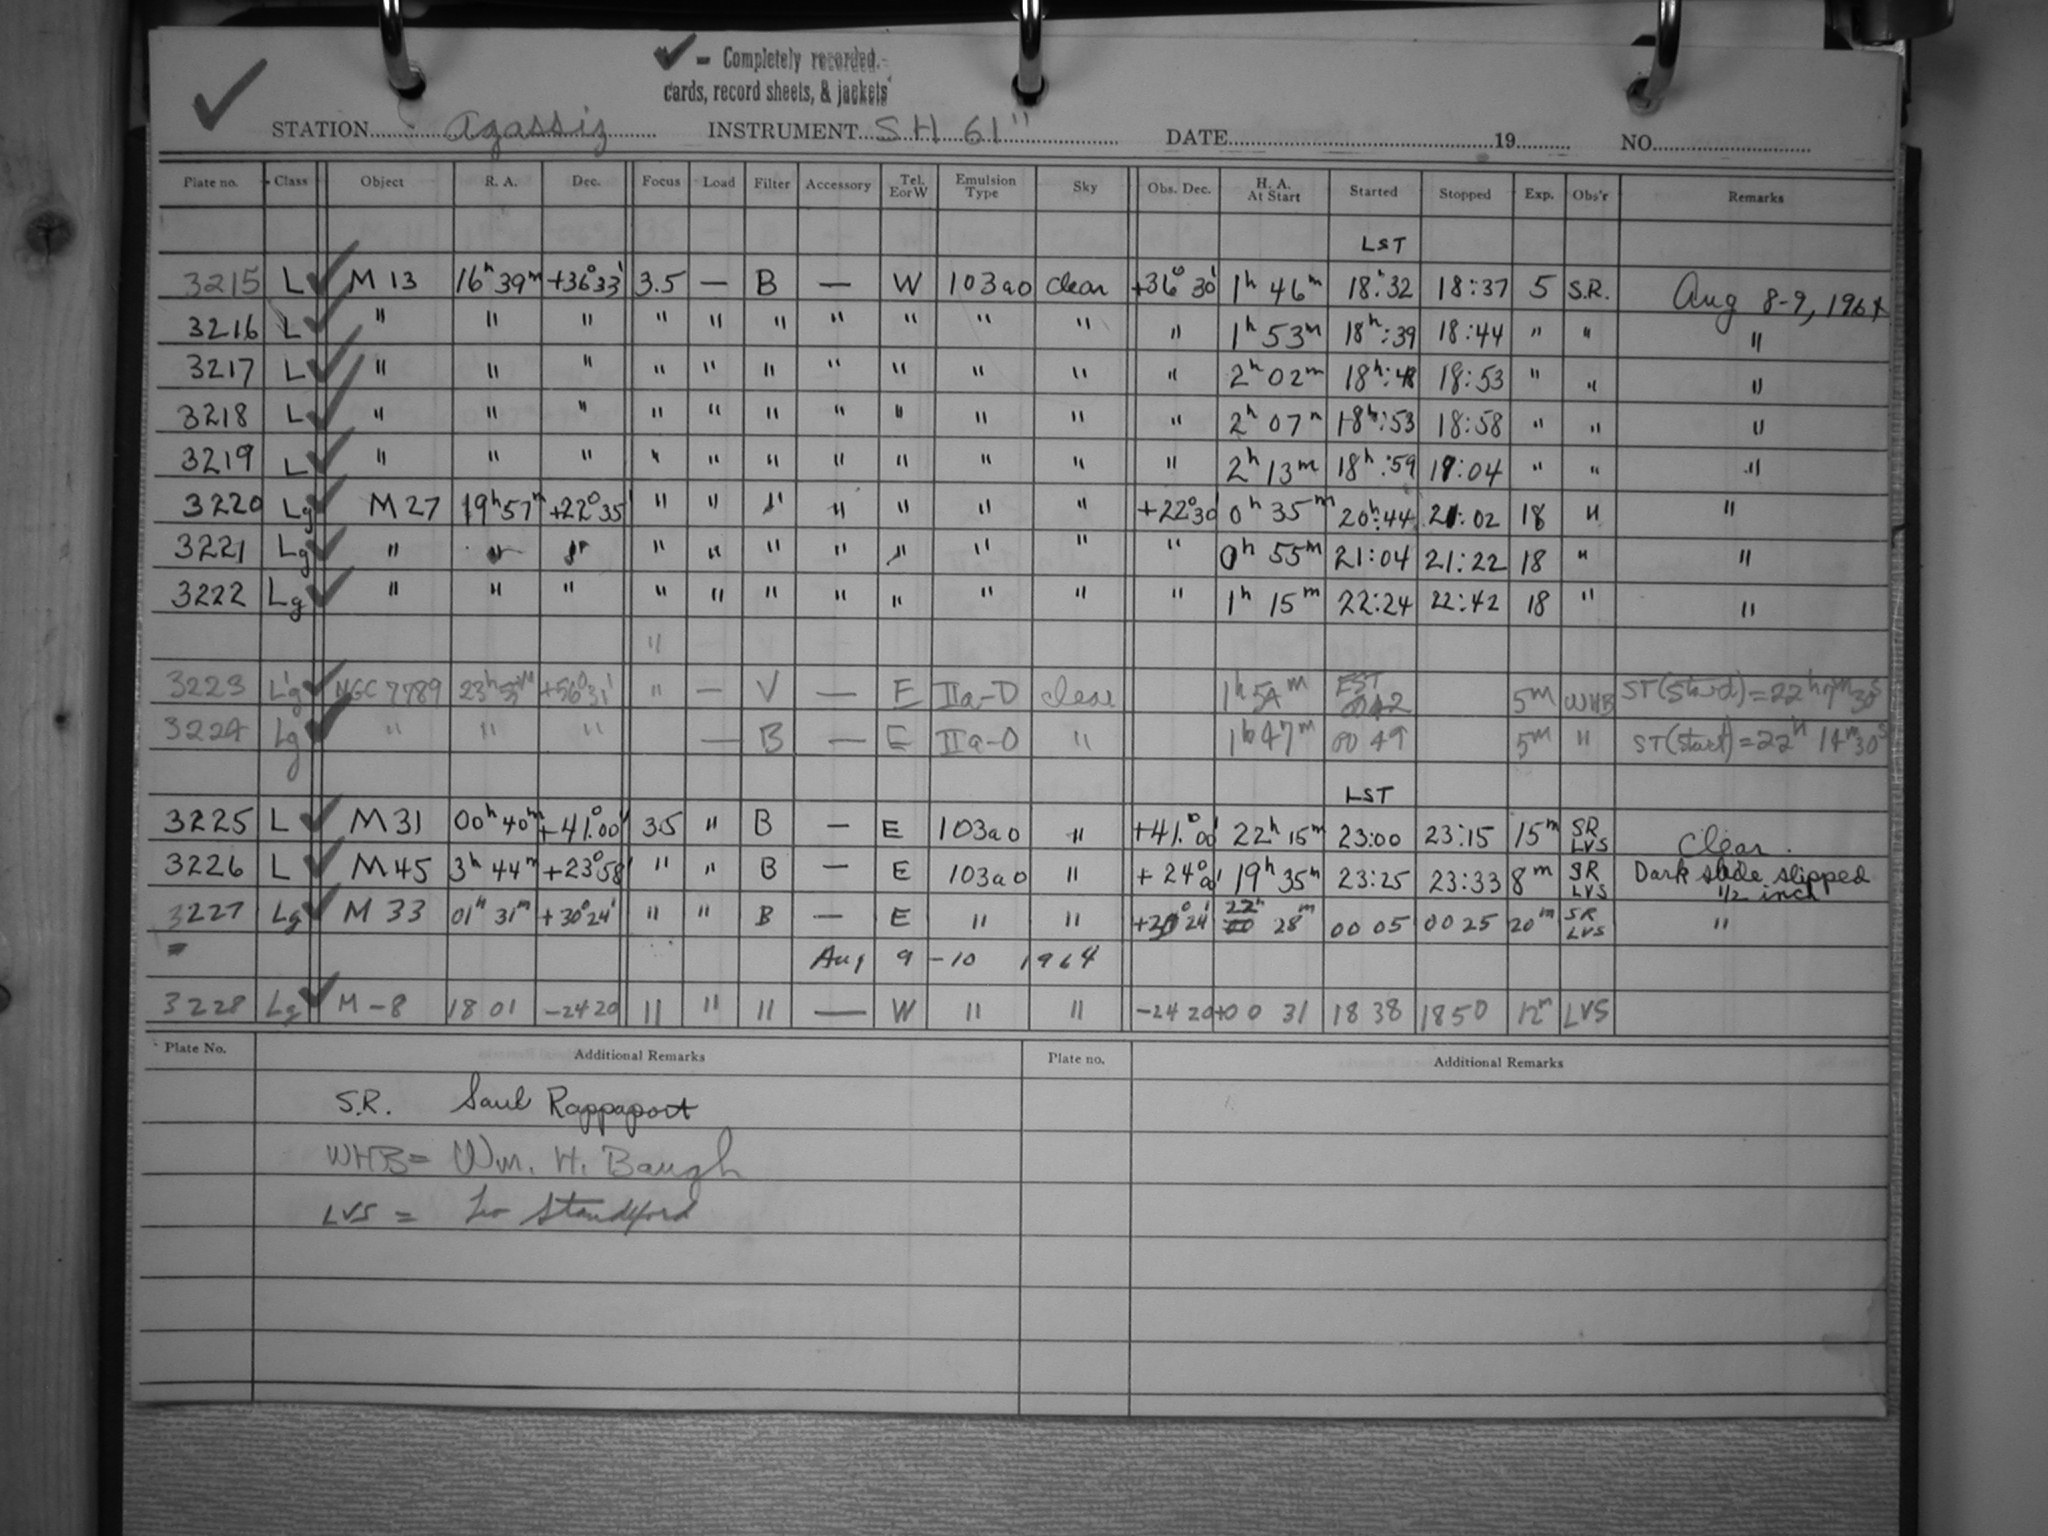 ✓ - Completely recorded.
cards, record sheets, & jackets
STATION Agassiz INSTRUMENT SH 61" DATE 19 NO.
Plate no. Class Object R. A. Dec. Focus Load Filter Accessory Tel. E or W Emulsion Type Sky Obs. Dec. H. A. At Start Started Stopped Exp. Obs'r Remarks
LST
3215 L ✓ M 13 16h 39m +36°33' 3.5 — B — W 103a0 clear +36° 30' 1h 46m 18:32 18:37 5 S.R. Aug 8-9, 1964
3216 L ✓ " " " " " " " " " " " 1h 53m 18h:39 18:44 " " "
3217 L ✓ " " " " " " " " " " " 2h 02m 18h:48 18:53 " " "
3218 L ✓ " " " " " " " " " " " 2h 07m 18h:53 18:58 " " "
3219 L ✓ " " " " " " " " " " " 2h 13m 18h:59 19:04 " " "
3220 Lg ✓ M 27 19h 57m +22°35' " " " " " " " +22°30' 0h 35m 20h:44 21:02 18 " "
3221 Lg ✓ " " " " " " " " " " " 0h 55m 21:04 21:22 18 " "
3222 Lg ✓ " " " " " " " " " " " 1h 15m 22:24 22:42 18 " "
" — V —
3223 Lg ✓ NGC 7789 +56°31' " — V — E IIa-D clear 1h 54m EST 0042 5m WHB ST(Start)=22h 7m 30s
3224 Lg ✓ " " " — B — E IIa-O " 1h 47m 00 49 5m " ST(Start)=22h 14m 30s
LST
3225 L ✓ M 31 00h 40m +41.°00' 3.5 " B — E 103a0 " +41.°00' 22h 15m 23:00 23:15 15m SR LVS Clear.
3226 L ✓ M 45 3h 44m +23°58' " " B — E 103a0 " +24°00' 19h 35m 23:25 23:33 8m SR LVS Dark slide slipped 1/2 inch
3227 Lg ✓ M 33 01h 31m +30°24' " " B — E " " 24' 22h 28m 00 05 00 25 20m SR LVS "
Aug 9 - 10 1964
3228 Lg ✓ M - 8 18 01 -24 20 " " " — W " " -24 20 +00 31 18 38 1850 12m LVS
Plate No. Additional Remarks Plate no. Additional Remarks
S.R. Saul Rappaport
WHB = Wm. H. Baugh
LVS = Standeford